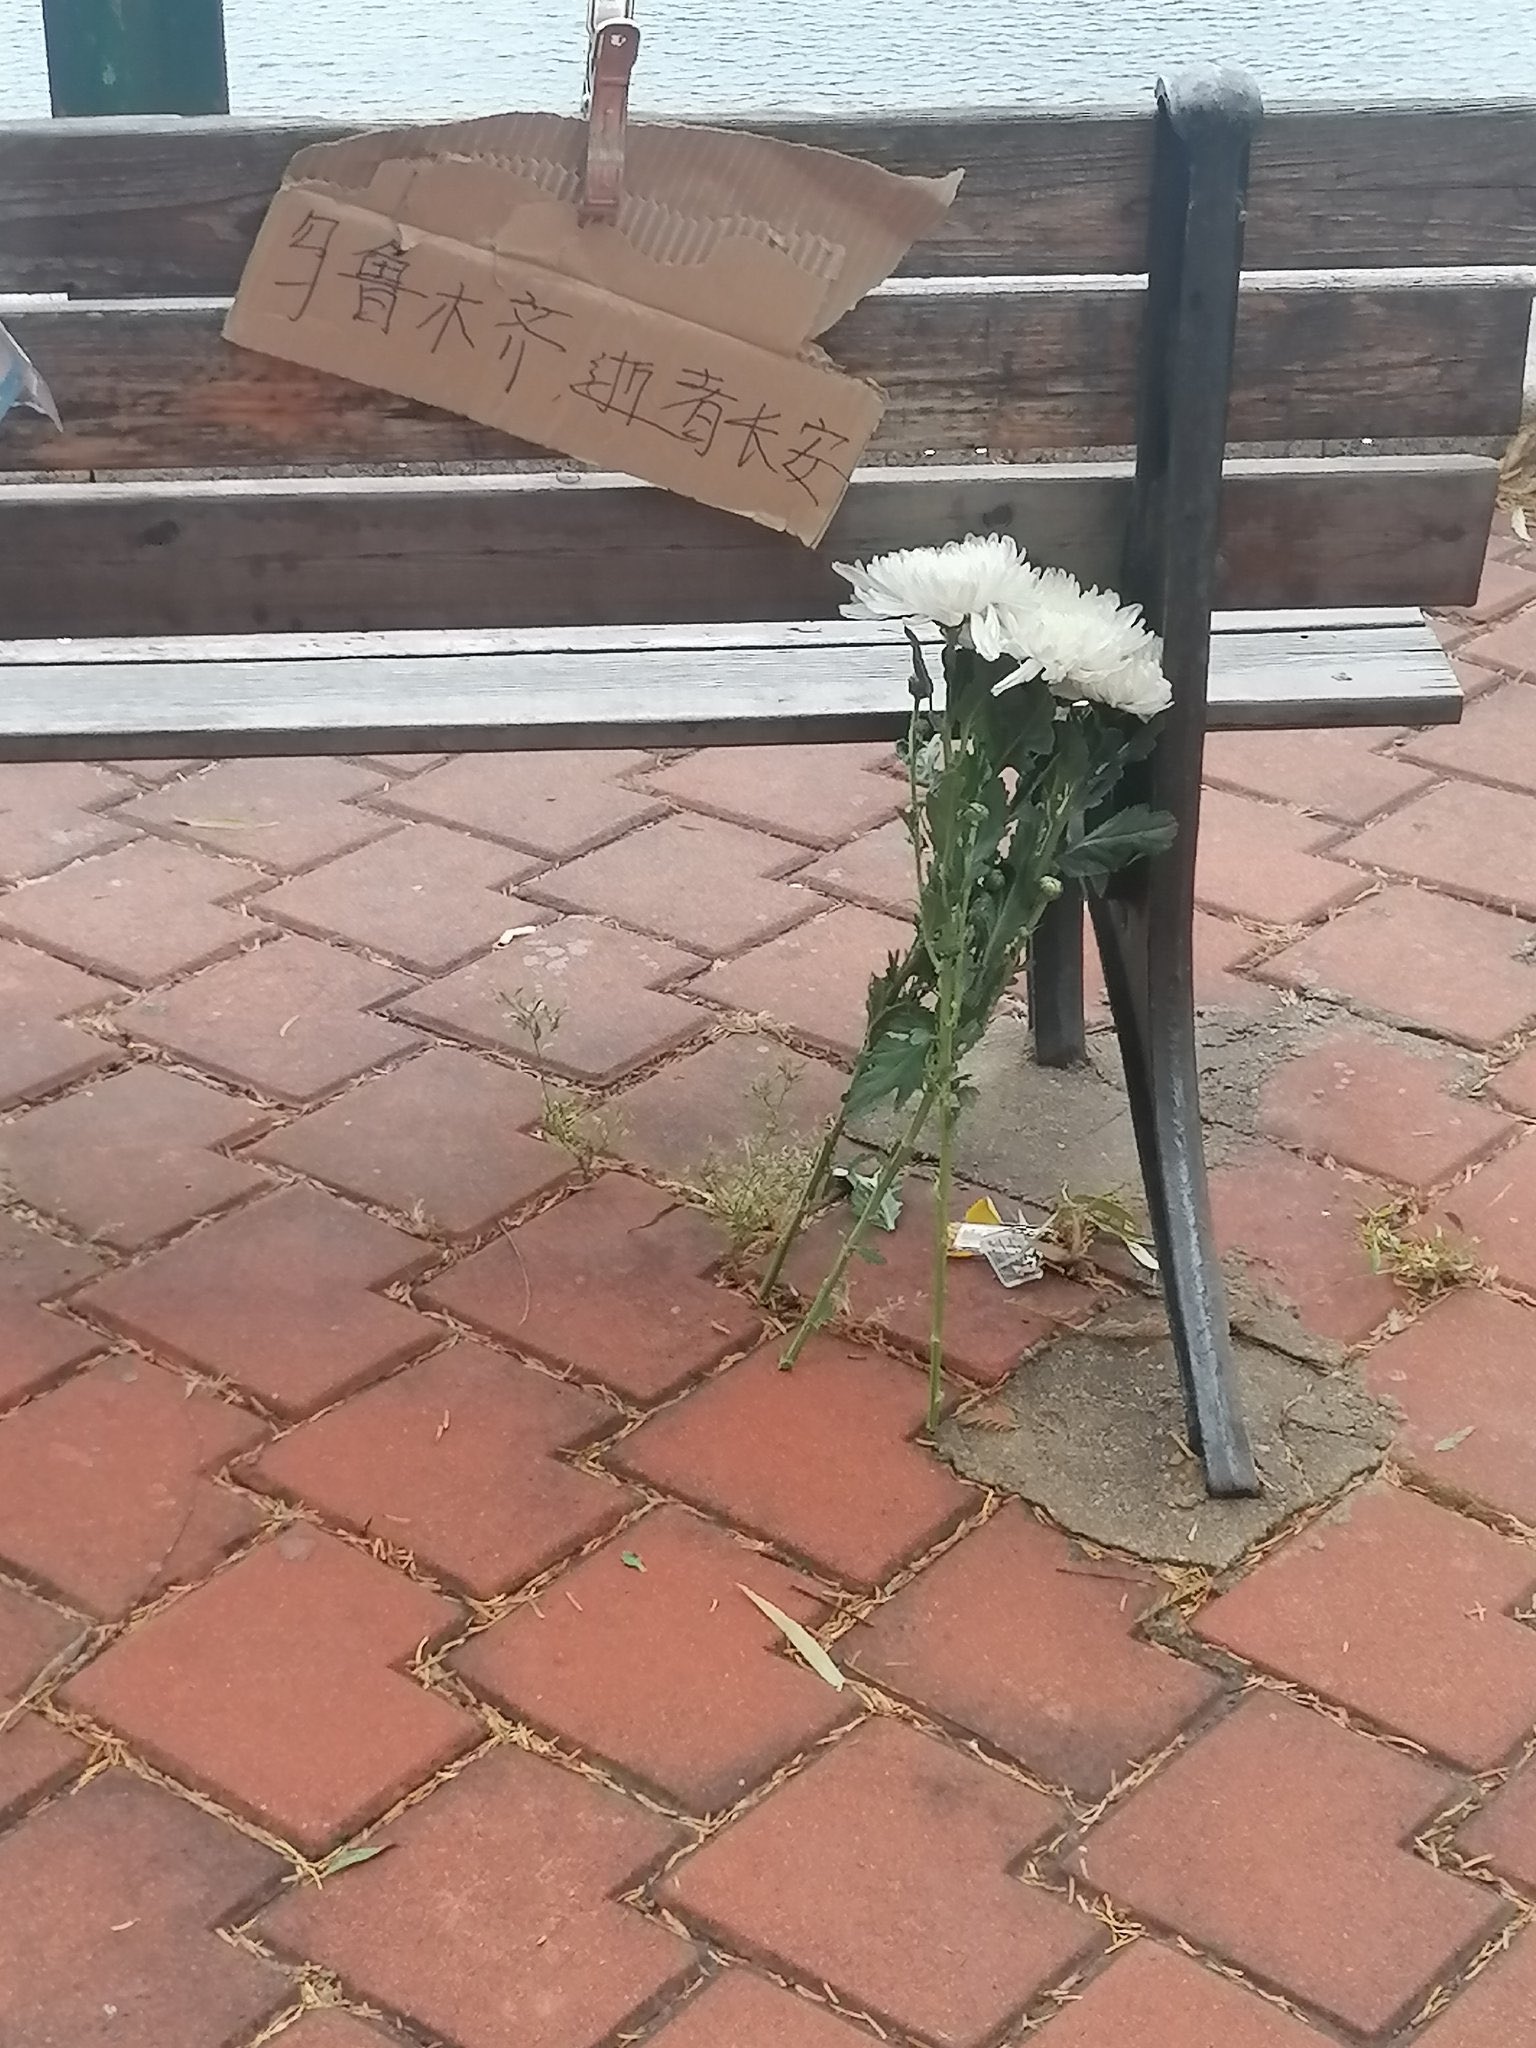 乌鲁木齐，逝者长安